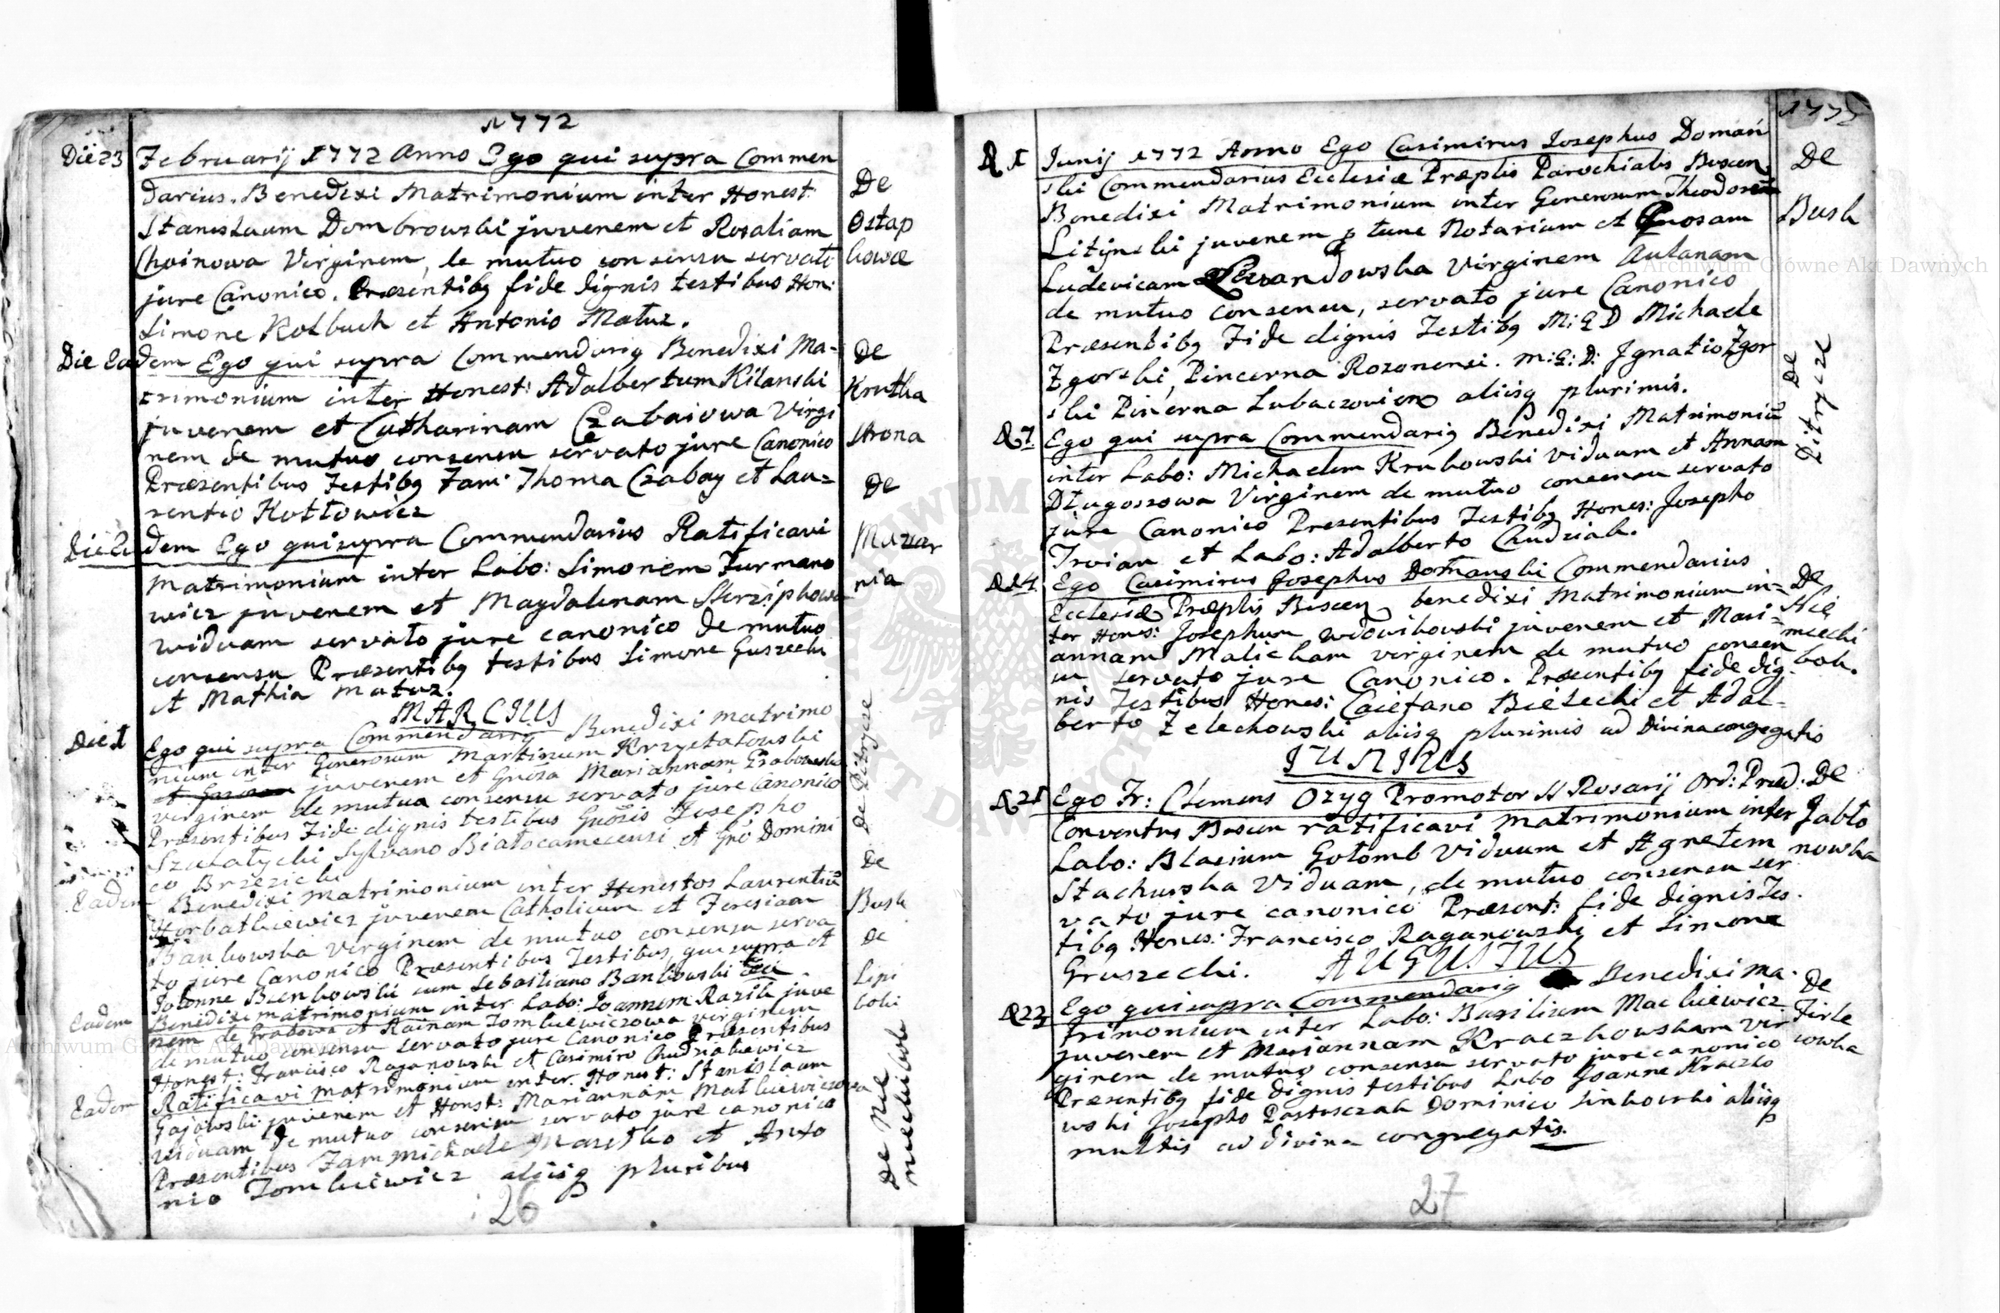 1772
Die 23 Februarij 1772 Anno Ego qui supra Commen
darius. Benedixi Matrimonium inter Honest:
Stanislaum Dombrowski juvenem et Rosaliam
Choinowa Virginem, de mutuo consensu servato
jure Canonico. Præsentibg fide dignis testibus Hon:
Simone Kolbuch et Antonio Matuz.
De
Ostap
kowce
Die Eadem Ego qui supra Commendarig Benedixi Ma-
trimonium inter Honest: Adalbertum Kilanski
juvenem et Catharinam Czabaiowa Virgi
nem de mutuo consensu servato jure Canonico
Præsentibus Testibg Fam: Thoma Czabay et Lau-
rentio Kotłowicz
De
Krutha
Strona
Die Eadem Ego qui supra Commendarius Ratificavi
Matrimonium inter Labo: Simonem Furmano
wicz juvenem et Magdalenam Skrzipkowa
viduam servato jure canonico de mutuo
consensu Præsentibg testibus Simone Guszecki
et Mathia Matuz.
De
Murar
nia
MARCIUS
Die 1 Ego qui supra Commendarig Benedixi matrimo
nium inter Generosum Martinum Krzyształowski
juvenem et Gnosa Mariannam Grabowska
virginem de mutua consensu servato jure Canonico
Præsentibus Fide dignis testibus Gnosis Josepho
Szałatycki Sylvano Białocamecensi et Gno Domini
co Brzezicki
De Pitrycze
Eadem Benedixi matrimonium inter Honestos Laurentiū
Horbatkiewicz juvenem Catholicum et Teresiam
Bańkowska virginem de mutuo consensu serva
to jure Canonico Præsentibus Testibus, qui supra et
Joanne Bienkowski cum Sebastiano Bankowski
De
Busk
Eadem Benedixi matrimonium inter Labo: Joannem Razik juve
nem de Grabowa et Rainam Tomkiewiczowa virginem
de mutuo consensu servato jure Canonico Præsentibus
Honest: Francisco Raganowski et Casimiro Chudziakiewicz
De
Lipi
boki
Eadem Ratificavi matrimonium inter Honest: Stanislaum
Gajowski juvenem et Honst: Mariannam Matkiewiczowa
viduam de mutuo consensu servato jure canonico
Præsentibus Fam Michaele Masztko et Anto
nio Tomkiewicz aliisq pluribus
De Nie
mieckibok
26
1772
D 1 Junij 1772 Anno Ego Casimirus Josephus Domań
ski Commendarius Ecclesiæ Præplis Parochialis Buscen.
Benedixi Matrimonium inter Generosum Theodorum
Litijnski juvenem p tunc Notarium et Gnosam
Ludovicam Lewandowska virginem Aulanam
de mutuo consensu, servato jure Canonico
Præsentibg Fide dignis Testibg M: G D Michaele
Zgorski, Pincerna Rozonensi. M: G: D: Ignatio Zgor
ski Pincerna Lubaczovien aliisq plurimis.
De
Busk
D 7 Ego qui supra Commendarig Benedixi Matrimoniū
inter Labo: Michaelem Krukowski viduum et Annam
Długoszowa Virginem de mutuo consensu servato
jure Canonico Præsentibus Testibg Hones: Josepho
Troian et Labo: Adalberto Chudziak.
De
Pitrycze
D 14 Ego Casimirus Josephus Domański Commendarius
Ecclesiæ Præplis Buscen, benedixi Matrimonium in-
ter Hones: Josephum Wdowikowski juvenem et Mari-
annam Malicham virginem de mutuo consen
su servato jure Canonico. Præsentibg fide dig-
nis Testibus Hones: Caietano Bielecki et Adal-
berto Zelechowski aliisq plurimis ad Divina congregatis
De
Nie
miecki
bok.
JUNIUS
D 21 Ego Fr: Clemens Ozyg Promotor SS Rosarij Ord: Præd:
Conventus Buscen ratificavi matrimonium inter
Labo: Blasium Gołomb Viduum et Agnetem
Stachurska Viduam, de mutuo consensu ser
vato jure canonico Præsent: fide dignis Tes
tibg Hones: Francisco Raganowski et Simone
Gruszecki.
De
Jabło
nowka
AUGUSTUS
D 23 Ego qui supra Commendarig Benedixi ma-
trimonium inter Labo: Basilium Mackiewicz
juvenem et Mariannam Kraczkowskam vir
ginem de mutuo consensu servato jure canonico
Præsentibg fide dignis testibus Labo Joanne Kraczko
wski Josepho Pastusczak Dominico Sinkowski aliisq
multis ad divina congregatis.
De
Firle
iowka
27
Archiwum Główne Akt Dawnych
Archiwum Główne Akt Dawnych
ARCHIWUM
AKT DAWNYCH